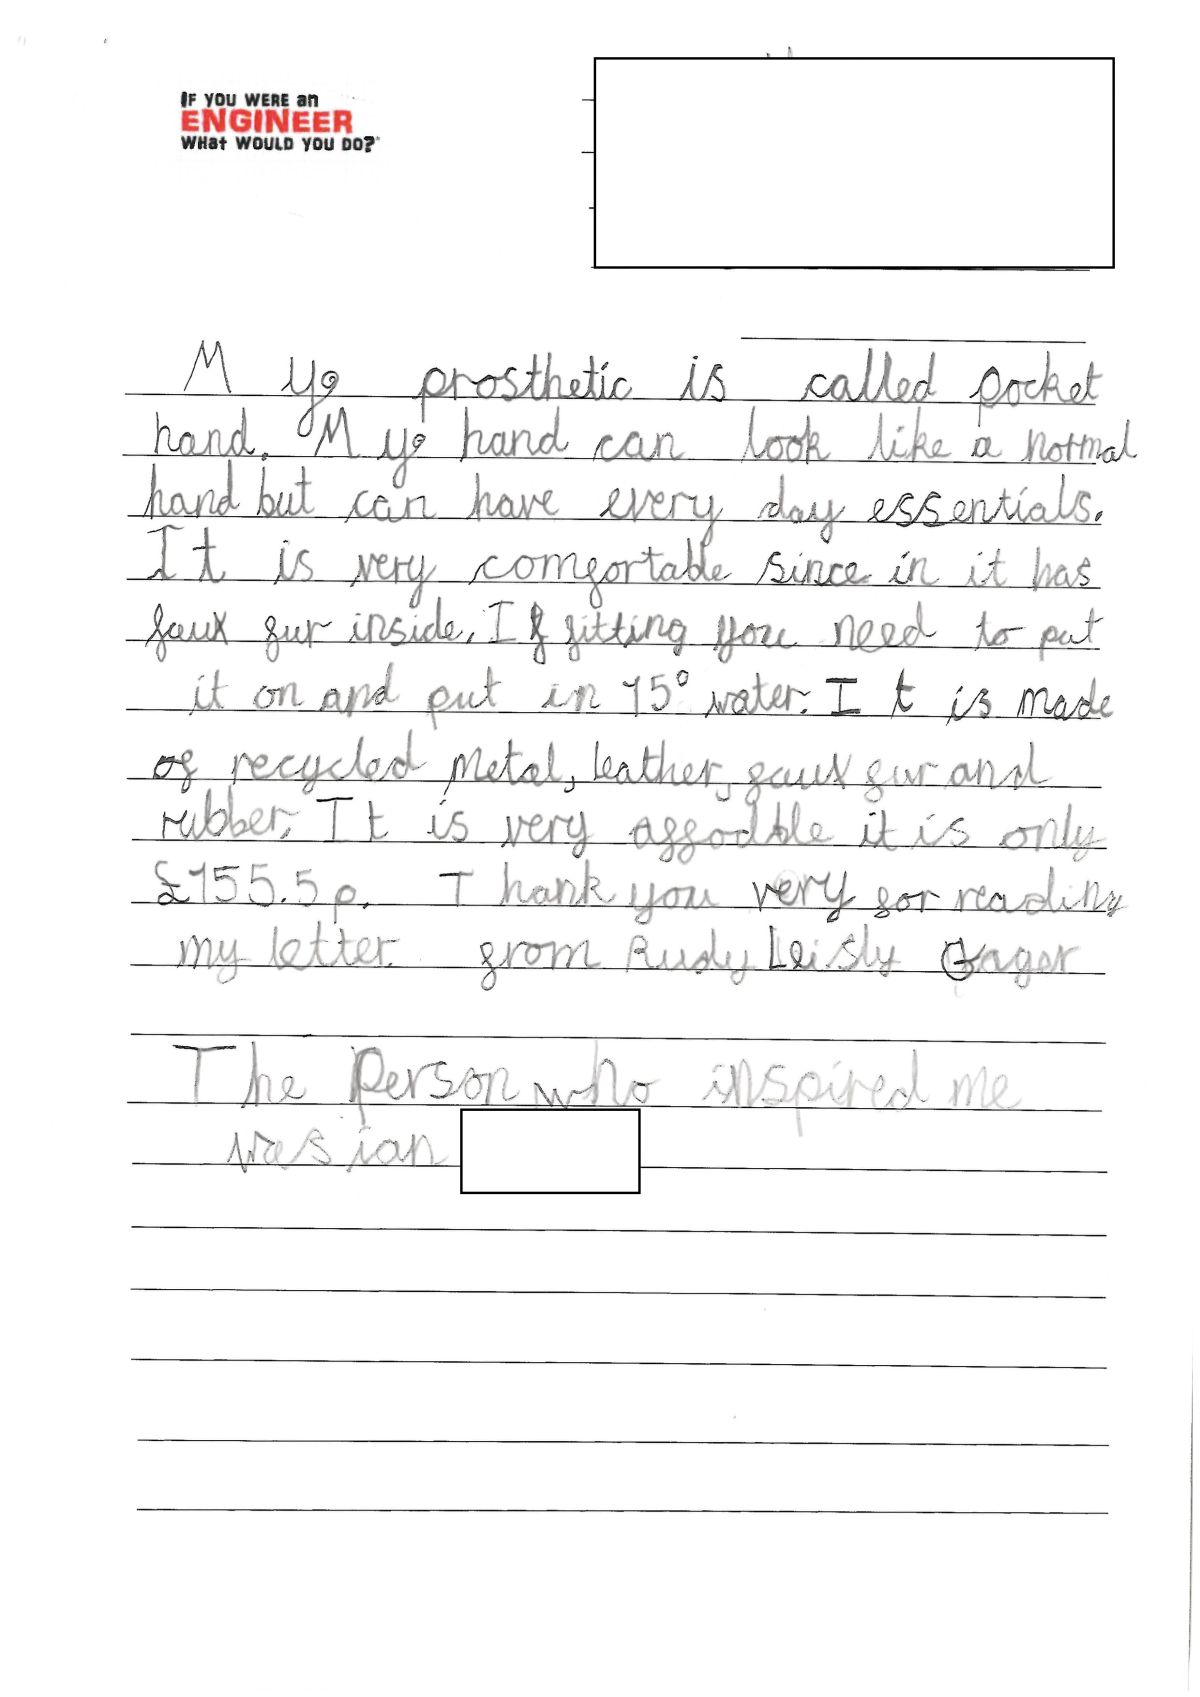 IF YOU WERE an
ENGINEER
WHat WOULD YOU DO?
My prosthetic is called pocket
hand. My hand can look like a normal
hand but can have every day essentials.
It is very comfortable since in it has
faux fur inside. If fitting you need to put
it on and put in 15° water. It is made
of recycled metal, leather, faux fur and
rubber. It is very affodble it is only
£155.5p. Thank you very for reading
my letter. from Rudy Leisly
The person who inspired me
was ian